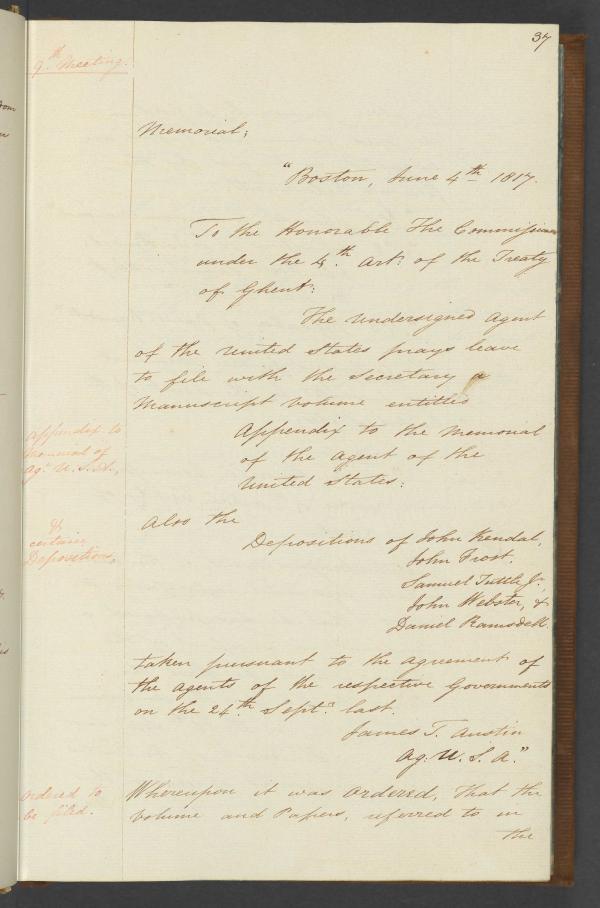 37
9th Meeting.
Memorial;
"Boston, June 4th 1817.
To the Honorable The Commissioners
under the 4th Art: of the Treaty
of Ghent:
The undersigned Agent
of the United States prays leave
to file with the Secretary a
Manuscript volume entitled
Appendix to the Memorial
of the Agent of the
United States:
Appendix to
Memorial of
Agt U. S. A.,
Also the
&
certain
Depositions.
Depositions of John Kendal,
John Frost,
Samuel Tuttle Jr.,
John Webster, &
Daniel Ramsdell.
taken pursuant to the agreement of
the Agents of the respective Governments
on the 24th Septr last.
James T. Austin
Ag. U. S. A."
Ordered to
be filed.
Whereupon it was ordered, that the
Volume and Papers, referred to in
the